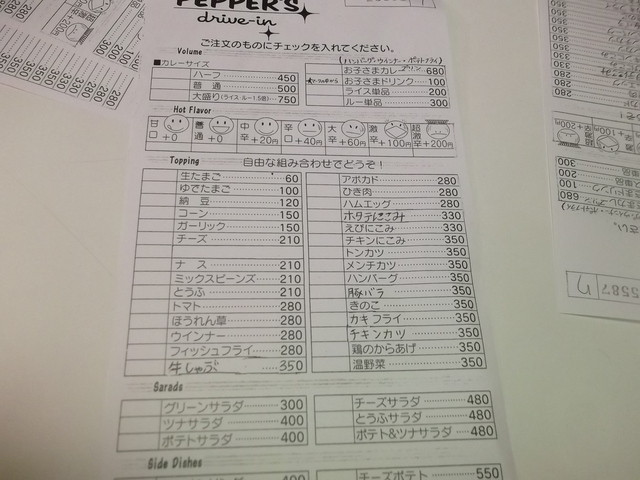 PEPPER'S
drive-in
ご注文のものにチェックを入れてください。
Volume
■カレーサイズ
ハーフ 450
普通 500
大盛り(ライス・ルー1.5倍) 750
(ハンバーグ・ウインナー・ポテトフライ)
お子さまカレー 680
お子さまドリンク 100
ライス単品 200
ルー単品 300
Hot Flavor
甘口+0
普通+0
中辛+20円
辛口+40円
大辛+60円
激辛+100円
超激辛+200円
Topping 自由な組み合わせでどうぞ!
生たまご 60
ゆでたまご 100
納豆 120
コーン 150
ガーリック 150
チーズ 210
ナス 210
ミックスビーンズ 210
とうふ 210
トマト 280
ほうれん草 280
ウインナー 280
フィッシュフライ 280
牛しゃぶ 350
アボカド 280
ひき肉 280
ハムエッグ 280
ホタテにこみ 330
えびにこみ 330
チキンにこみ 350
トンカツ 350
メンチカツ 350
ハンバーグ 350
豚バラ 350
きのこ 350
カキフライ 350
チキンカツ 350
鶏のからあげ 350
温野菜 350
Sarads
グリーンサラダ 300
ツナサラダ 400
ポテトサラダ 400
チーズサラダ 480
とうふサラダ 480
ポテト&ツナサラダ 480
Side Dishes
チーズポテト 550